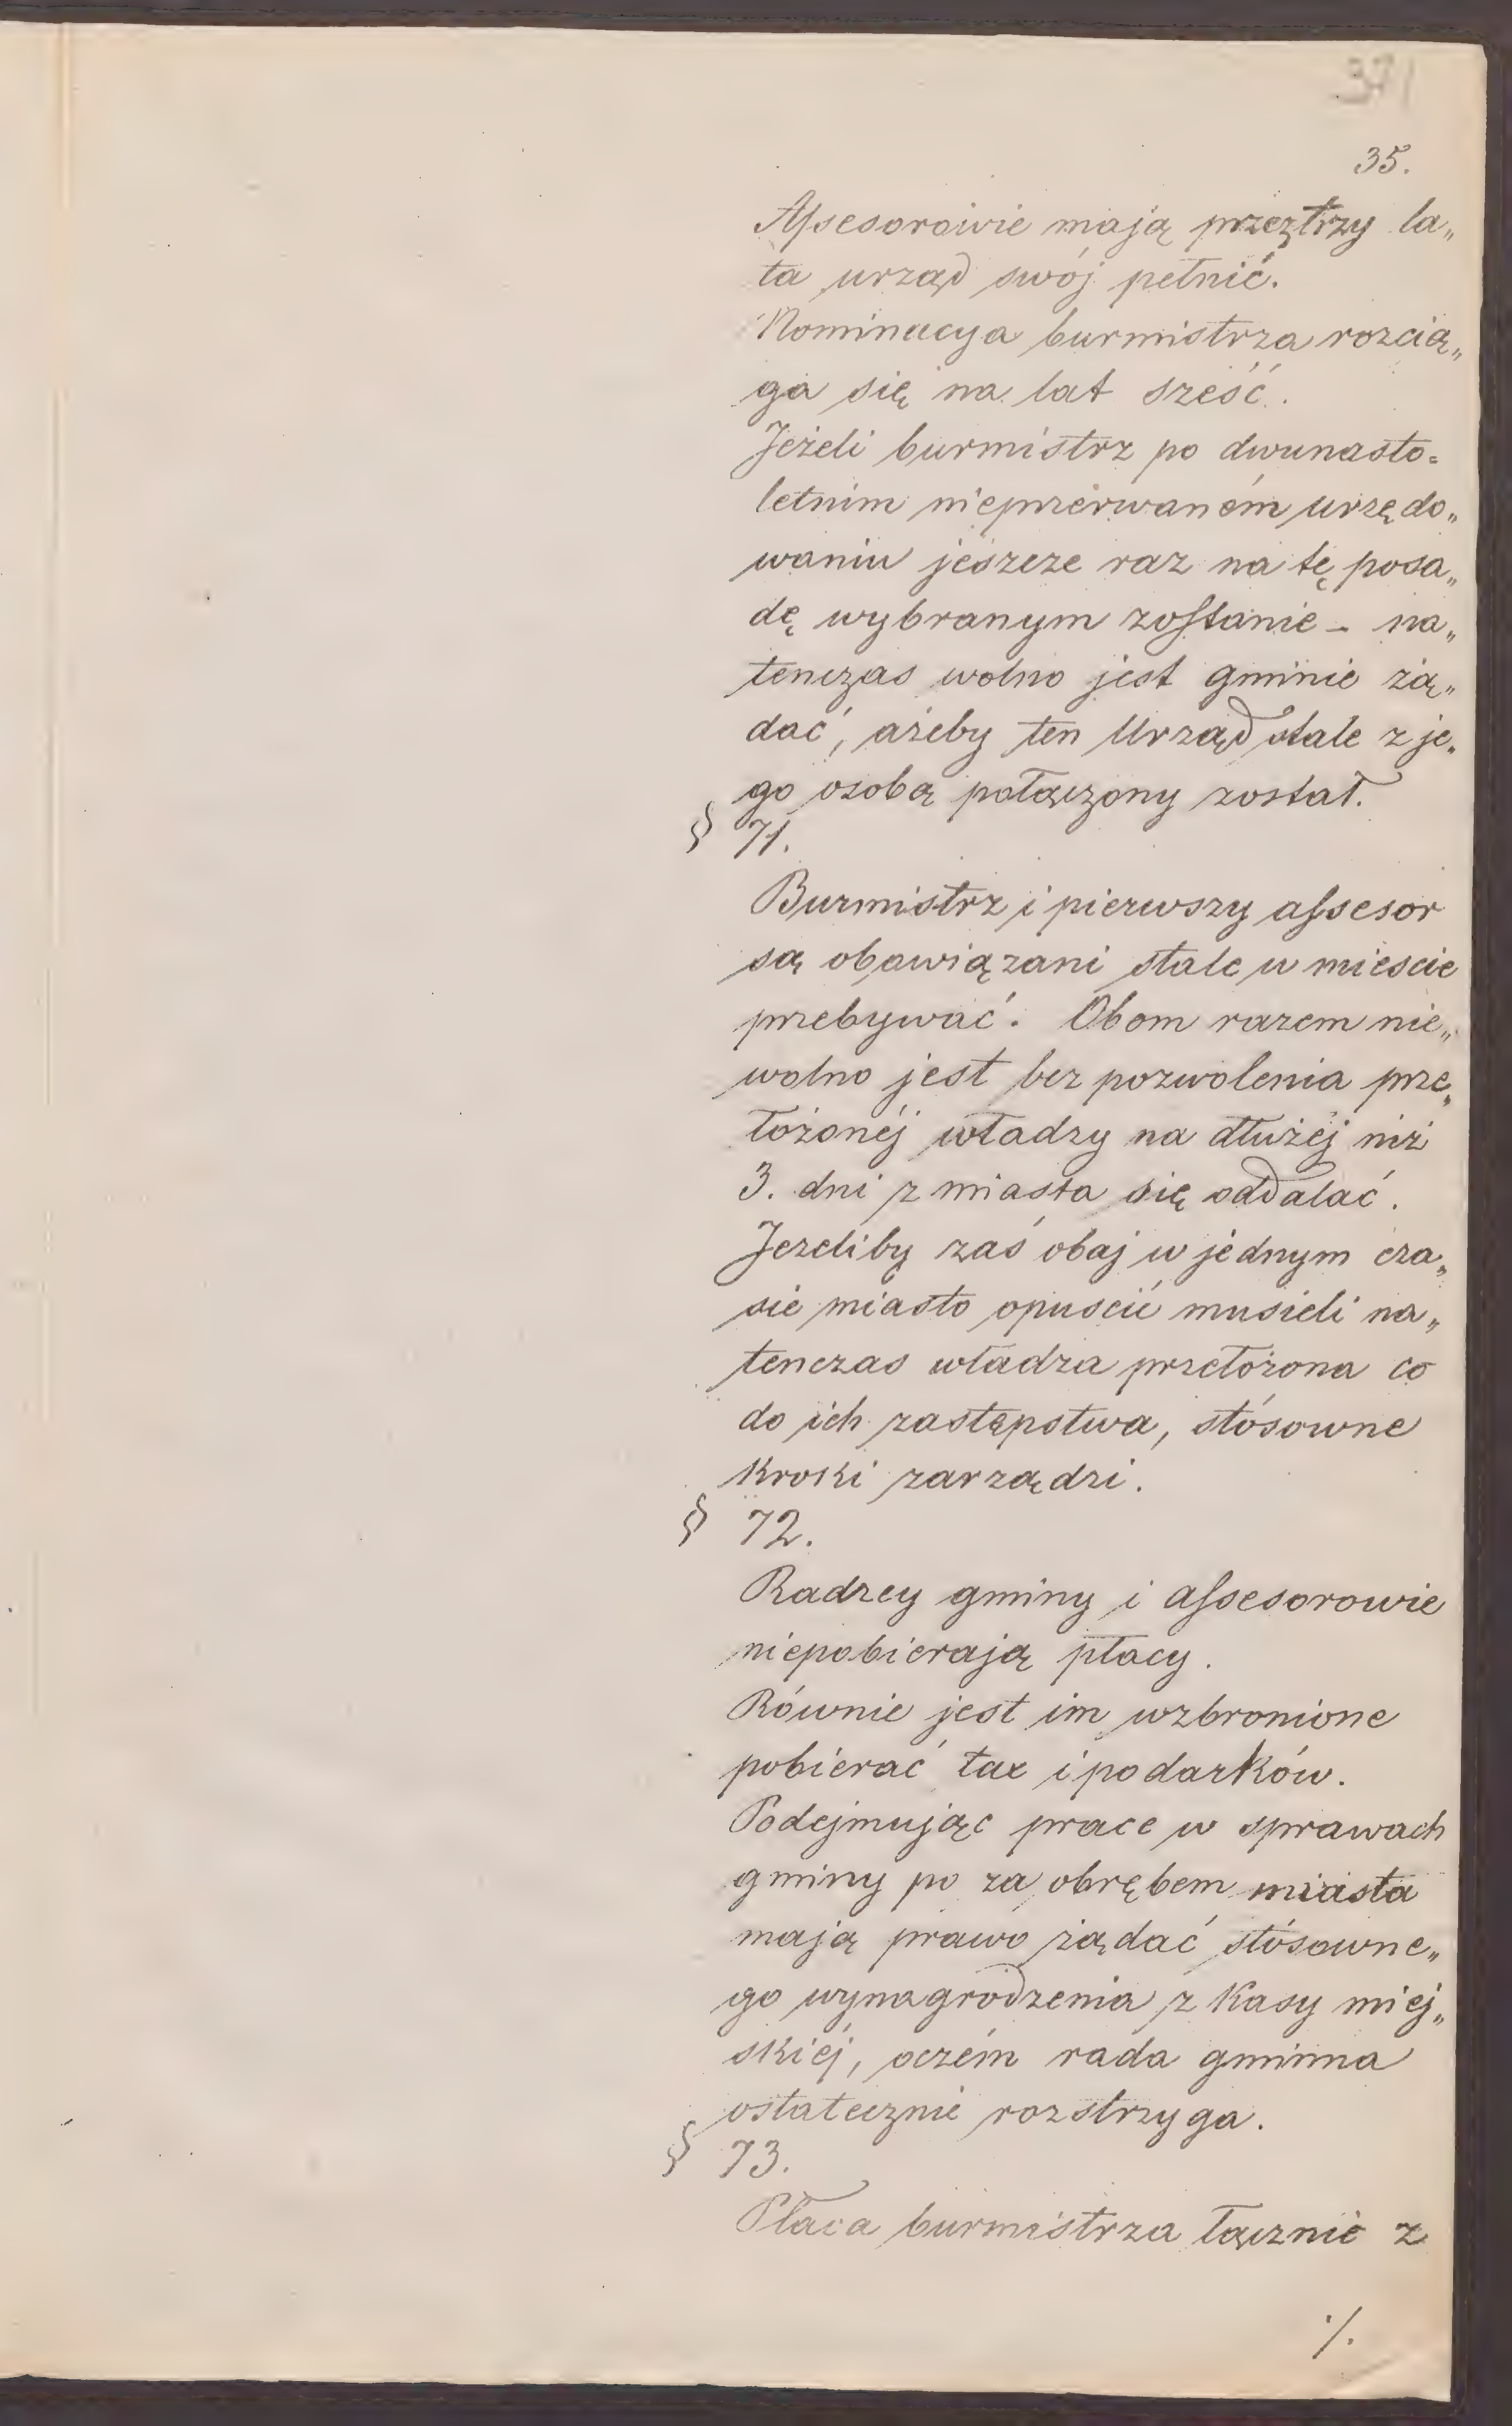 371
35.
Assesorowie mają przez trzy la„
ta urząd swój pełnić.
Nominacya burmistrza rozcią„
ga się na lat sześć.
Jeżeli burmistrz po dwunasto=
letnim nieprzerwaném urzędo„
waniu jeszcze raz na tę posa„
dę wybranym zostanie – na„
tenczas wolno jest gminie żą„
dać, ażeby ten Urząd stale z je„
go osobą połączony został.
§ 71.
Burmistrz i pierwszy assesor
są obowiązani stale w miescie
przebywać. Obom razem nie„
wolno jest bez pozwolenia prze„
łożonéj władzy na dłużéj niż
3. dni z miasta się oddalać.
Jezeliby zaś obaj w jednym cza„
sie miasto opuscić musieli na„
tenczas władza przełożona co
do ich zastępstwa, stósowne
kroki zarządzi.
§ 72.
Radzcy gminy i assesorowie
niepobierają płacy.
Równie jest im wzbronione
pobierać tax i podarków.
Podejmując prace w sprawach
gminy po za obrębem miasta
mają prawo żądać stósowne„
go wynagrodzenia z kasy miej„
skiéj, oczém rada gminna
ostatecznie rozstrzyga.
§ 73.
Płaca burmistrza łącznie z
·/.